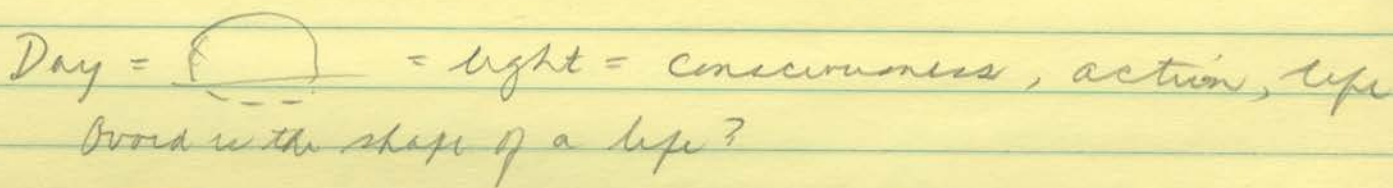 Day = = light = consciousness, action, life
Ovoid is the shape of a life?